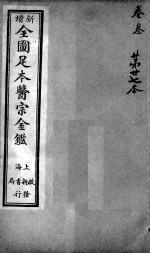 卷叁
第廿七本
新增
全圖足本醫宗金鑑
上海
書局
發行